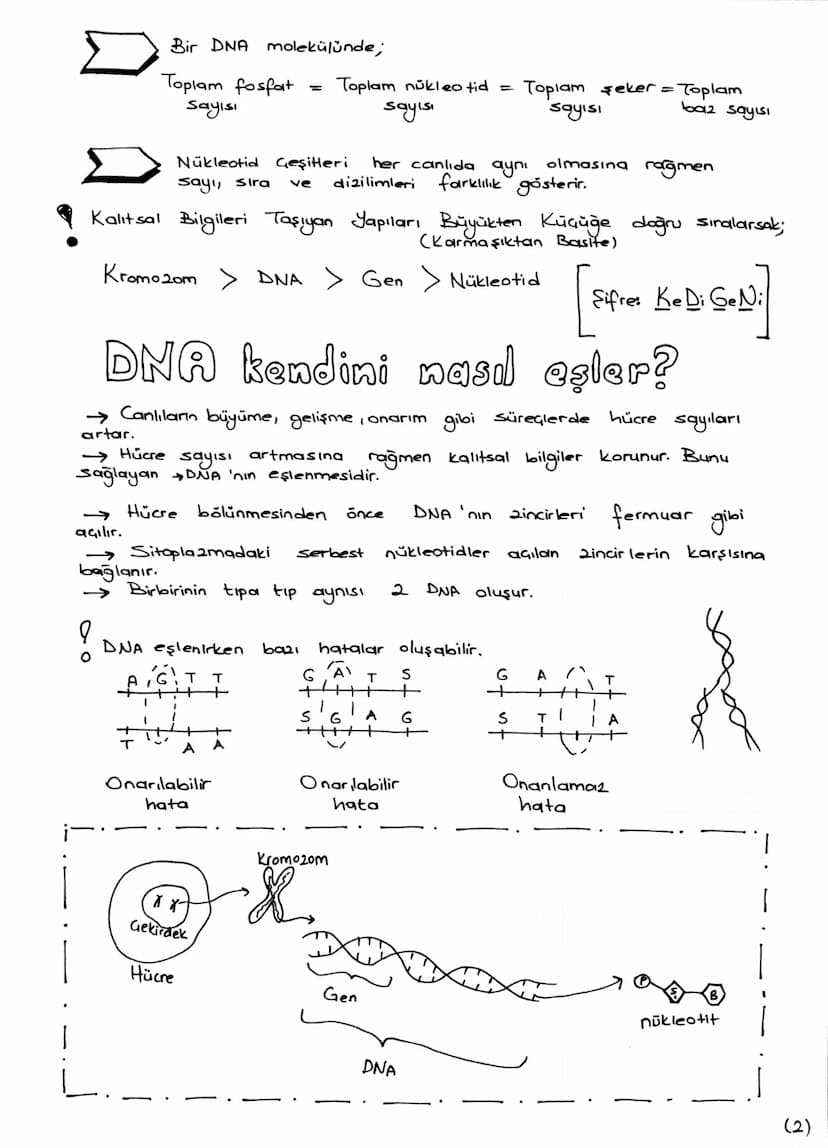 Bir DNA molekülünde;
Toplam fosfat = Toplam nükleotid = Toplam şeker = Toplam
sayısı sayısı sayısı baz sayısı
Nükleotid Çeşitleri her canlıda aynı olmasına rağmen
sayı, sıra ve dizilimleri farklılık gösterir.
! Kalıtsal Bilgileri Taşıyan Yapıları Büyükten Küçüğe doğru sıralarsak;
(Karmaşıktan Basite)
Kromozom > DNA > Gen > Nükleotid [Şifre: KeDi GeNi]
DNA kendini nasıl eşler?
→ Canlıların büyüme, gelişme, onarım gibi süreçlerde hücre sayıları
artar.
→ Hücre sayısı artmasına rağmen kalıtsal bilgiler korunur. Bunu
sağlayan → DNA'nın eşlenmesidir.
→ Hücre bölünmesinden önce DNA'nın zincirleri fermuar gibi
açılır.
→ Sitoplazmadaki serbest nükleotidler açılan zincirlerin karşısına
bağlanır.
→ Birbirinin tıpa tıp aynısı 2 DNA oluşur.
! DNA eşlenirken bazı hatalar oluşabilir.
A G T T G A T S G A T
T A A S G A G S T A
Onarılabilir Onarılabilir Onarılamaz
hata hata hata
Kromozom
Çekirdek
Hücre
Gen
P Ş B
nükleotit
DNA
(2)